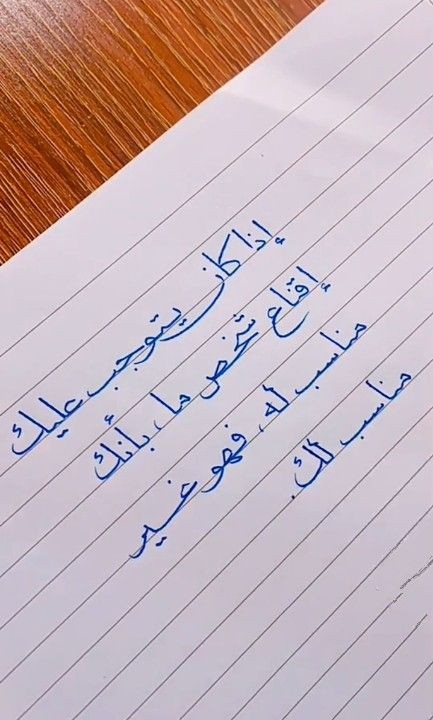 إذا كان يتوجب عليك
إقناع شخص ما، بأنك
مناسب له، فهو غير
مناسب لك.